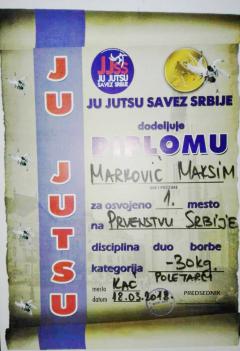 JU JUTSU
JJSS
JU JUTSU
SAVEZ SRBIJE
JU JUTSU SAVEZ SRBIJE
dodeljuje
DIPLOMU
MARKOVIĆ MAKSIM
IME I PREZIME
za osvojeno 1. mesto
na PRVENSTVU SRBIJE
disciplina duo borbe
kategorija -30kg
POLETARCI
mesto KAĆ
datum 18.03.2018.
PREDSEDNIK